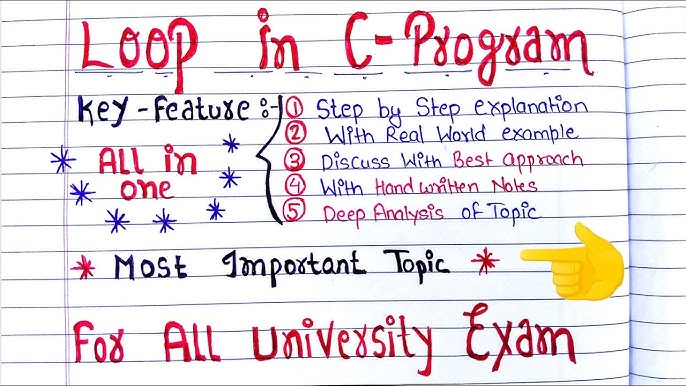 Loop in C-Program
Key-Feature :-
① Step by Step explanation
② With Real World example
③ Discuss With Best approach
④ With Handwritten Notes
⑤ Deep Analysis of Topic
* All in one *
* Most Important Topic *
For All University Exam